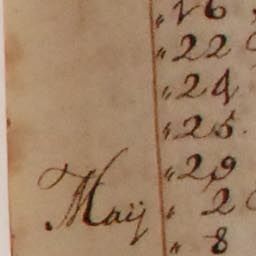 " 16
" 22
" 24
" 25.
" 29
Maij " 2
" 8